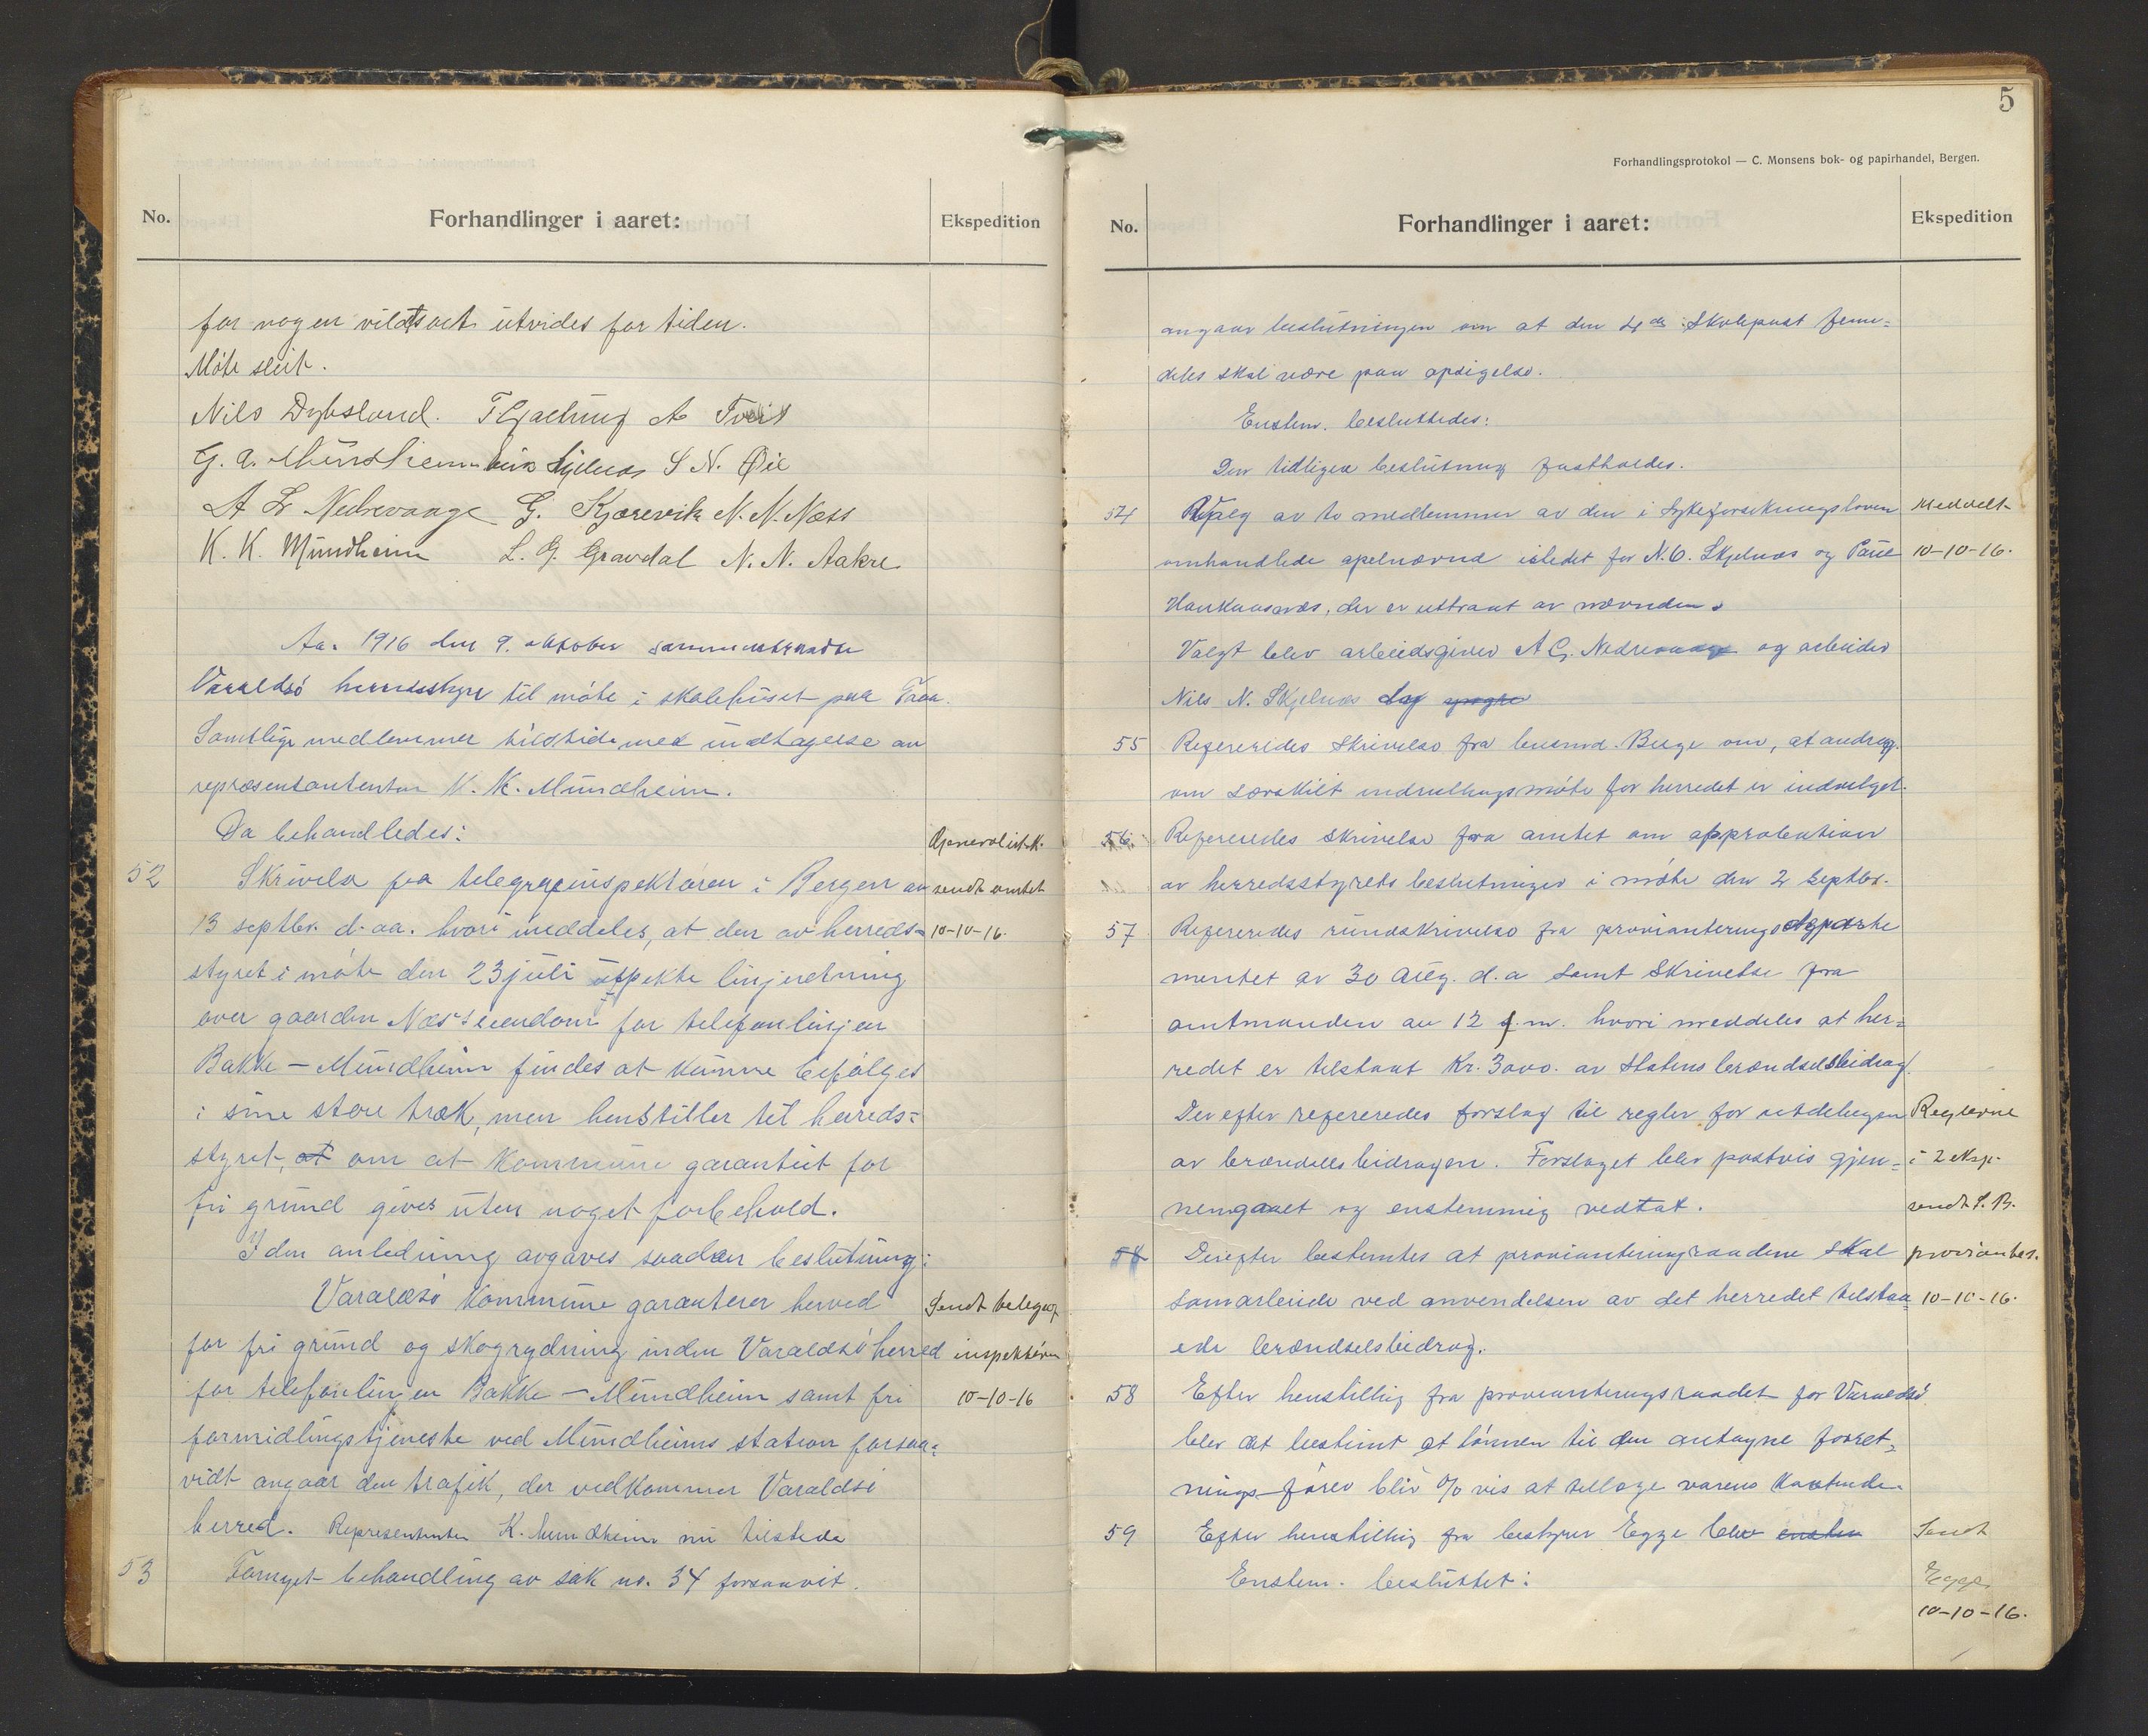 No.
Forhandlinger i aaret:
Ekspedition
for nogen vildtsort utvides for tiden.
Møte slut.
Nils Dybsland. T Gjactung A Tveit
G. A. Mundheim Skjelnæs S N. Øie
A L Nedrevaage G. Kjærevik N. N. Næss
K. K. Mundheim L. G. Gravdal N. N. Aakre
Aar 1916 den 9. oktober sammentraadte
Varaldsø herredsstyre til møte i skolehuset paa Traa.
Samtlige medlemmer tilstede med undtagelse av
repræsentanten K. K. Mundheim.
Da behandledes:
52
Skrivelse fra telegrafinspektøren i Bergen av
13 septbr. d. aa. hvori meddeles, at den av herreds=
styret i møte den 23 juli utpekte linjeretning
over gaarden Næs's eiendom for telefonlinjen
Bakke – Mundheim findes at kunne befølges
i sine store træk, men henstiller til herreds=
styret, at om at kommune garantiet for
fri grund gives uten noget forbehold.
I den anledning avgaves saadan beslutning:
Varaldsø kommune garanterer herved
for fri grund og skogrydning inden Varaldsø herred
for telefonlinjen Bakke – Mundheim samt fri
formidlingstjeneste ved Mundheims station forsaa=
vidt angaar den trafik, der vedkommer Varaldsø
herred. Representanten K. Mundheim nu tilstede
53
Fornyet behandling av sak no. 34 forsaavit
sendt amtet
10-10-16.
Sendt telegraf
inspektøren
10-10-16
5
Forhandlingsprotokol — C. Monsens bok- og papirhandel, Bergen.
No.
Forhandlinger i aaret:
Ekspedition
angaar beslutningen om at den 4de Skolepost frem=
deles skal være paa opsigelse.
Enstem. besluttedes:
Den tidligere beslutning fastholdes.
54
Valg av to medlemmer av den i sykeforsikringsloven
omhandlede apelnævnd istedet for N. O. Skjelnæs og Paul
Haukaasnæs, der er uttraat av nævnden.
Valgt blev arbeidsgiver A G. Nedrevaage og arbeider
Nils N. Skjelnæs
55
Refereredes skrivelse fra lensmd. Berge om, at andrag.
om særskilt indrulleringsmøte for herredet er indvilget.
56.
Refereredes skrivelse fra amtet om approbation
av herredsstyrets beslutninger i møte den 2 septbr.
57
Refereredes rundskrivelse fra provianteringsdeparte
mentet av 30 aug. d. a samt skrivelse fra
amtmanden av 12 f. m. hvori meddeles at her=
redet er tilstaat Kr. 3000. av statens brændselsbidrag.
Derefter refereredes forslag til regler for utdelingen
av brændselsbidragen. Forslaget blev postvis gjen=
nemgaaet og enstemmig vedtat.
58
Derefter bestemtes at provianteringsraadene skal
samarbeide ved anvendelsen av det herredet tilstaa=
ede brændselsbidrag.
58
Efter henstilling fra provianteringsraadet for Varaldsø
blev det bestemt at lønnen til den antagne forret=
nings-fører blir % vis at tillægge varens kostende.
59
Efter henstilling fra bestyrer Egge blev enstem
Enstem. besluttet:
Meddelt
10-10-16.
Reglerne
i 2 eksp.
sendt S. B.
proviantes.
10-10-16.
Sendt
Egge
10-10-16.